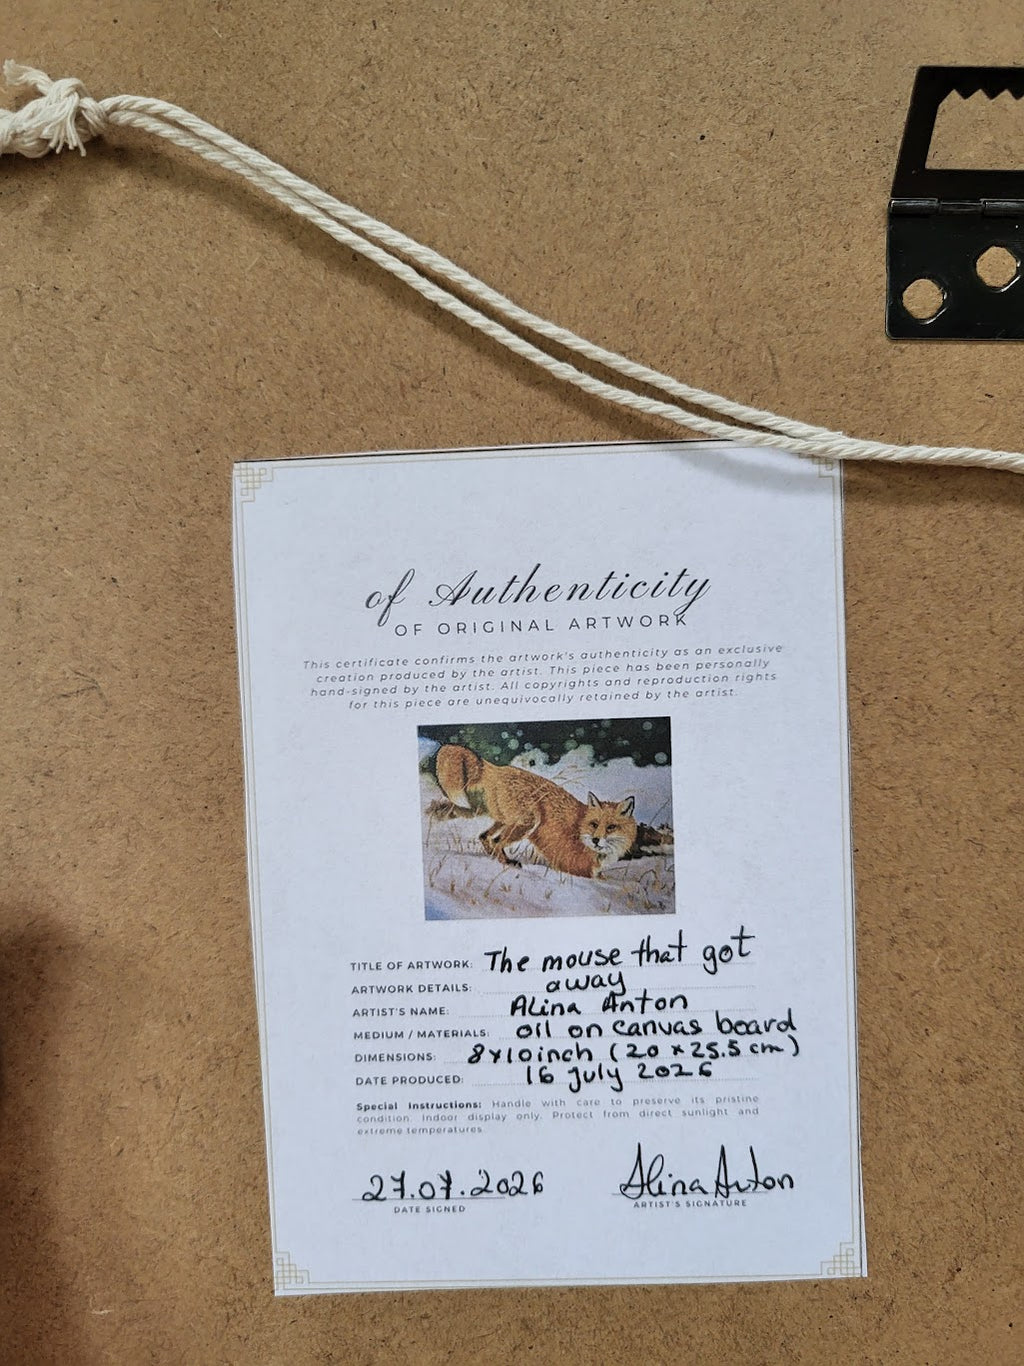 of Authenticity
OF ORIGINAL ARTWORK
This certificate confirms the artwork's authenticity as an exclusive
creation produced by the artist. This piece has been personally
hand-signed by the artist. All copyrights and reproduction rights
for this piece are unequivocally retained by the artist.
TITLE OF ARTWORK: The mouse that got
ARTWORK DETAILS: away
ARTIST'S NAME: Alina Anton
MEDIUM / MATERIALS: oil on canvas board
DIMENSIONS: 8x10inch (20 x 25.5 cm)
DATE PRODUCED: 16 July 2026
Special Instructions: Handle with care to preserve its pristine
condition. Indoor display only. Protect from direct sunlight and
extreme temperatures.
27.07.2026 Alina Anton
DATE SIGNED ARTIST'S SIGNATURE